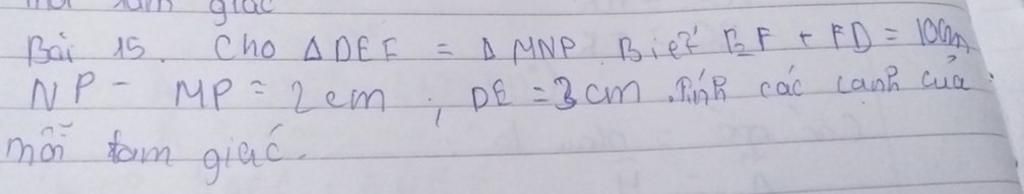 mỗi tam giác
Bài 15. Cho Δ DEF = Δ MNP. Biết EF + FD = 10cm,
NP - MP = 2cm, DE = 3cm. Tính các cạnh của
mỗi tam giác.